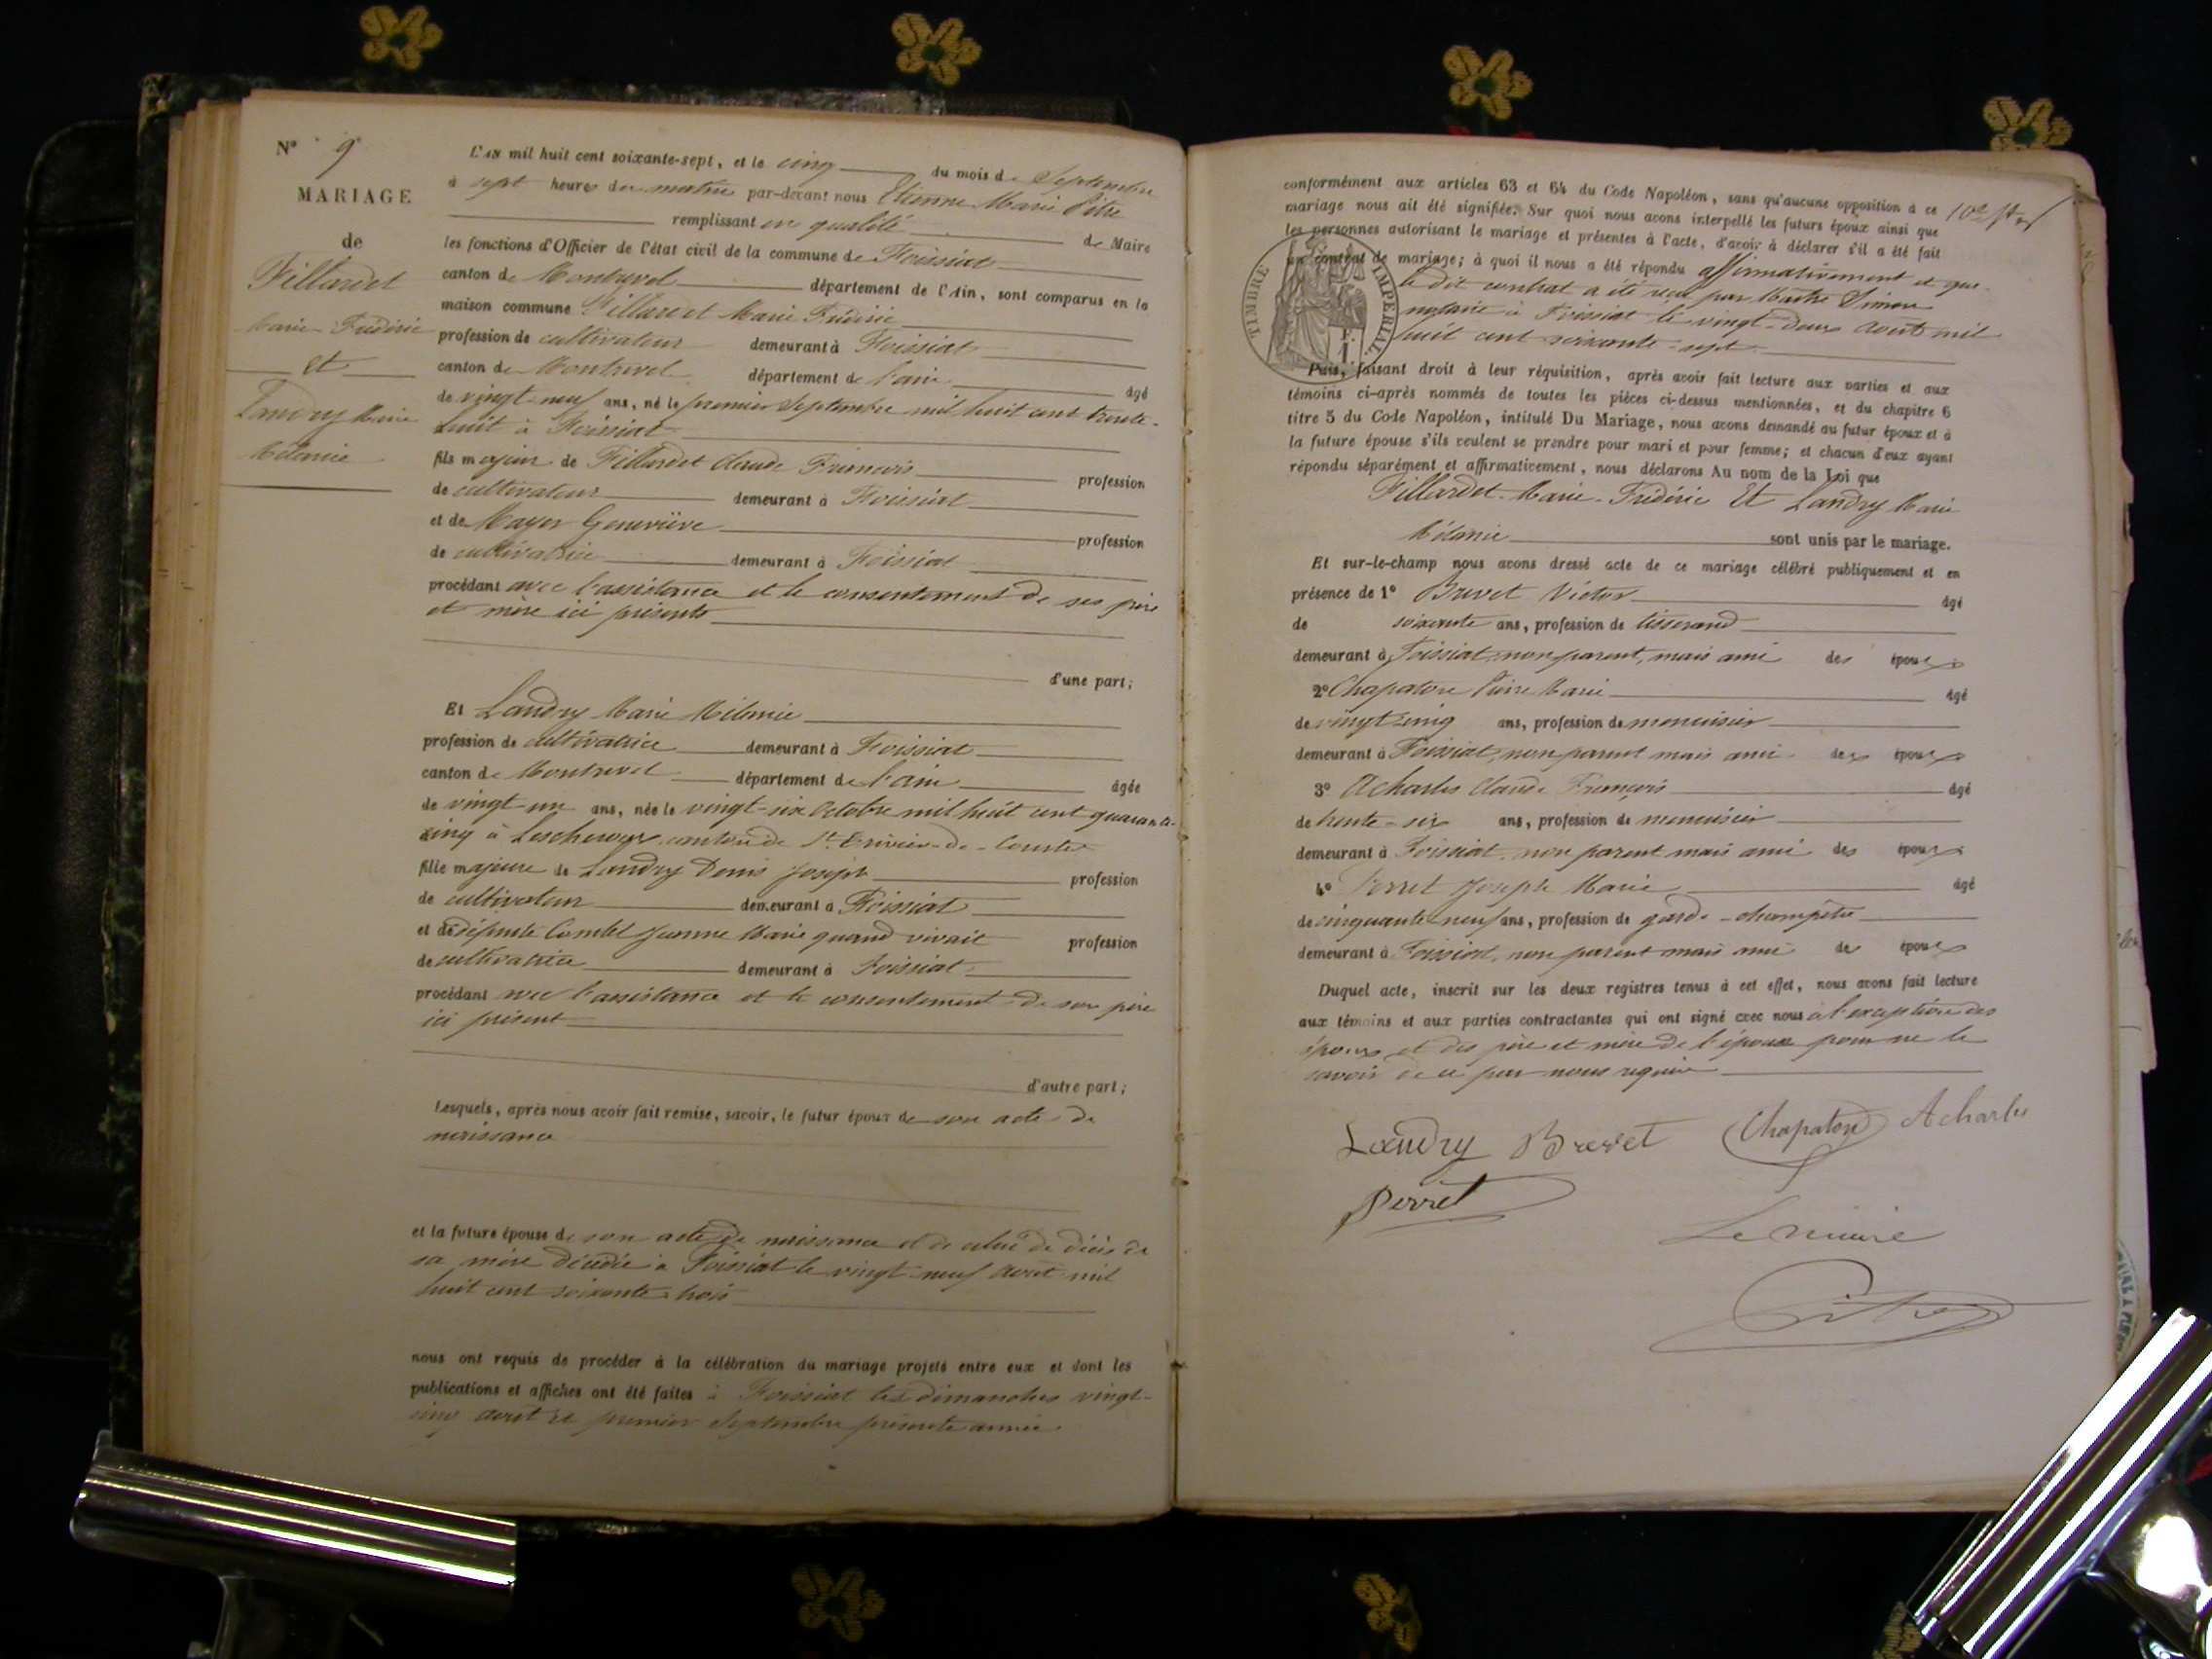 N° 9
MARIAGE
de
Fillardet
Marie Frédéric
Et
Landry Marie
Mélanie
L'AN mil huit cent soixante-sept, et le cinq du mois de Septembre
à sept heures du matin par-devant nous Etienne Marie Pitre
remplissant en qualité de Maire
les fonctions d'Officier de l'état civil de la commune de Foissiat
canton de Montrevel département de l'Ain, sont comparus en la
maison commune Fillardet Marie Frédéric
profession de cultivateur demeurant à Foissiat
canton de Montrevel département de l'ain âgé
de vingt-neuf ans, né le premier Septembre mil huit cent trente-
huit à Foissiat
fils majeur de Fillardet Claude François profession
de cultivateur demeurant à Foissiat
et de Mayer Geneviève profession
de cultivatrice demeurant à Foissiat
procédant avec l'assistance et le consentement de ses père
et mère ici présents
d'une part;
Et Landry Marie Mélanie
profession de cultivatrice demeurant à Foissiat
canton de Montrevel département de l'ain âgée
de vingt-un ans, née le vingt-six Octobre mil huit cent quarante-
cinq à Lescheroux canton de St Trivier-de-Courtes
fille majeure de Landry Denis Joseph profession
de cultivateur demeurant à Foissiat
et de défunte Combet Jeanne Marie quand vivait profession
de cultivatrice demeurant à Foissiat
procédant avec l'assistance et le consentement de son père
ici présent
d'autre part;
Lesquels, après nous avoir fait remise, savoir, le futur époux de son acte de
naissance
et la future épouse de son acte de naissance et de celui de décès de
sa mère décédée à Foissiat le vingt-neuf Août mil
huit cent soixante-trois
nous ont requis de procéder à la célébration du mariage projeté entre eux et dont les
publications et affiches ont été faites à Foissiat les dimanches vingt-
cinq août et premier Septembre présente année
conformément aux articles 63 et 64 du Code Napoléon, sans qu'aucune opposition à ce
mariage nous ait été signifiée. Sur quoi nous avons interpellé les futurs époux ainsi que
les personnes autorisant le mariage et présentes à l'acte, d'avoir à déclarer s'il a été fait
un contrat de mariage; à quoi il nous a été répondu affirmativement et que
le dit contrat a été reçu par Maître Simon
notaire à Foissiat le vingt-deux Août mil
huit cent soixante-sept
TIMBRE IMPERIAL
1 F.
Puis, faisant droit à leur réquisition, après avoir fait lecture aux parties et aux
témoins ci-après nommés de toutes les pièces ci-dessus mentionnées, et du chapitre 6
titre 5 du Code Napoléon, intitulé Du Mariage, nous avons demandé au futur époux et à
la future épouse s'ils veulent se prendre pour mari et pour femme; et chacun d'eux ayant
répondu séparément et affirmativement, nous déclarons Au nom de la Loi que
Fillardet Marie-Frédéric Et Landry Marie
Mélanie sont unis par le mariage.
Et sur-le-champ nous avons dressé acte de ce mariage célébré publiquement et en
présence de 1° Brevet Victor âgé
de soixante ans, profession de tisserand
demeurant à Foissiat, non parent, mais ami des époux
2° Chapaton Pierre Marie âgé
de vingt-cinq ans, profession de menuisier
demeurant à Foissiat, non parent mais ami des époux
3° Acharles Claude François âgé
de trente-six ans, profession de menuisier
demeurant à Foissiat, non parent mais ami des époux
4° Perret Joseph Marie âgé
de cinquante-neuf ans, profession de garde-champêtre
demeurant à Foissiat, non parent mais ami des époux
Duquel acte, inscrit sur les deux registres tenus à cet effet, nous avons fait lecture
aux témoins et aux parties contractantes qui ont signé avec nous à l'exception des
époux et des père et mère de l'époux pour ne le
savoir de ce par nous requis
Landry Brevet Chapaton Acharles
Perret
Le maire
Pitre